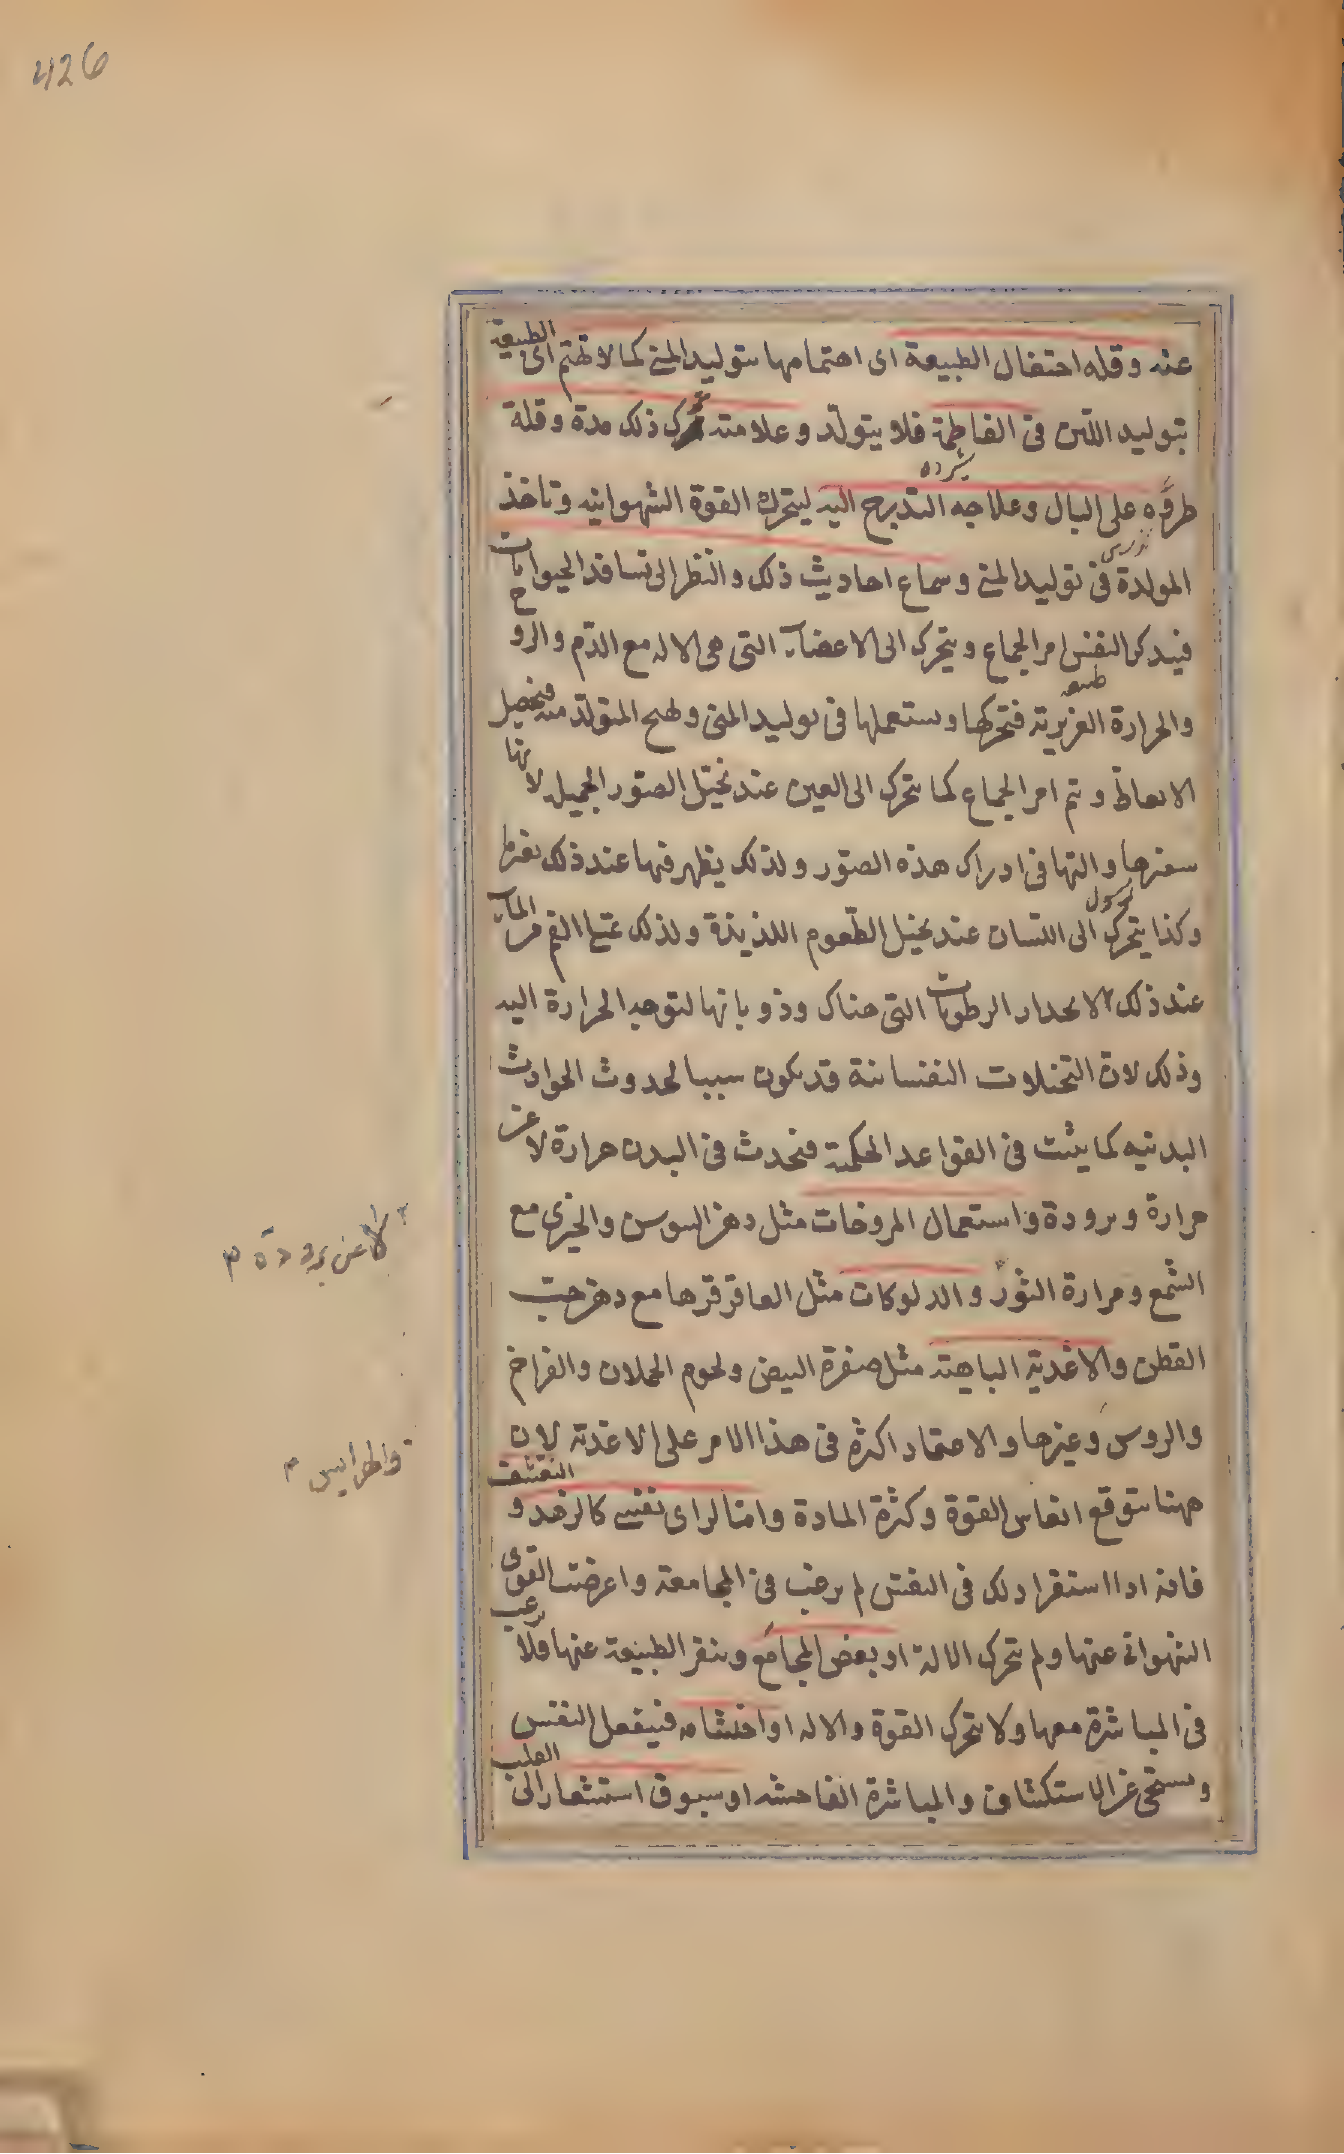 426
عنه وقله احتفال الطبيعة اى اهتمامها بتوليد المنى كما لا تهتم اى الطبيعة
بتوليد اللبن فى الفاطمة فلا يتولّد وعلامته ترك ذلك مدة وقلة
طروّه على البال وعلاجه التدريج اليه ليتحرك القوة الشهوانيه وتاخذ
المولدة فى توليد المنى وسماع احاديث ذلك والنظر الى تسافد الحيوانات
فيتذكر النفس امر الجماع ويتحرك الى الاعضاء التى هى الاله مع الدّم والروح
والحرارة الغريزية فتحركها ويستعملها فى توليد المنى المتولّد منه فيحصل
الانعاظ ويتم امر الجماع كما يتحرك الى العين عند تخيّل الصّور الجميله لانها
سفيرها والتها فى ادراك هذه الصّور ولذلك يظهر فيها عند ذلك
وكذا يتحرك الى اللسان عند تخيل الطّعوم اللذيذة ولذلك الفم من الماء
عند ذلك لانحدار الرطوبات التى هناك وذوبانها لتوجه الحرارة اليه
وذلك لان التخيلات النفسانية قد يكون سببا لحدوث الحوادث
البدنيه كما يثبت فى القواعد الحكمية فيحدث فى البدن حرارة لا عن
حرارة وبرودة واستعمال المروخات مثل دهن السوسن والخيرى مع
لا عن برودة م
الشمع ومرارة الثور والدلوكات مثل العاقرقرحا مع دهن حب
القطن والاغذية الباهية مثل صفرة البيض ولحوم الحملان والفراخ
والروس وغيرها والاعتماد اكثره فى هذا الامر على الاغذية لان
والهرايس م
ههنا يتوقع انعاش القوة وكثرة المادة واما لراى نفسى كالزهد و التقشف
فانه اذا استقر ذلك فى النفس لم يرغب فى المجامعة واعرضت القوى
الشهوانى عنها ولم تتحرك الالة او بغض المجامع وينفر الطبيعة عنها فلا يرغب
فى المباشرة معها ولا يتحرك القوة والاله او احتشامه فينفعل النفس
ويستحى عن الاستكشاف والمباشرة الفاحشه او سبوق استشعار الى القلب